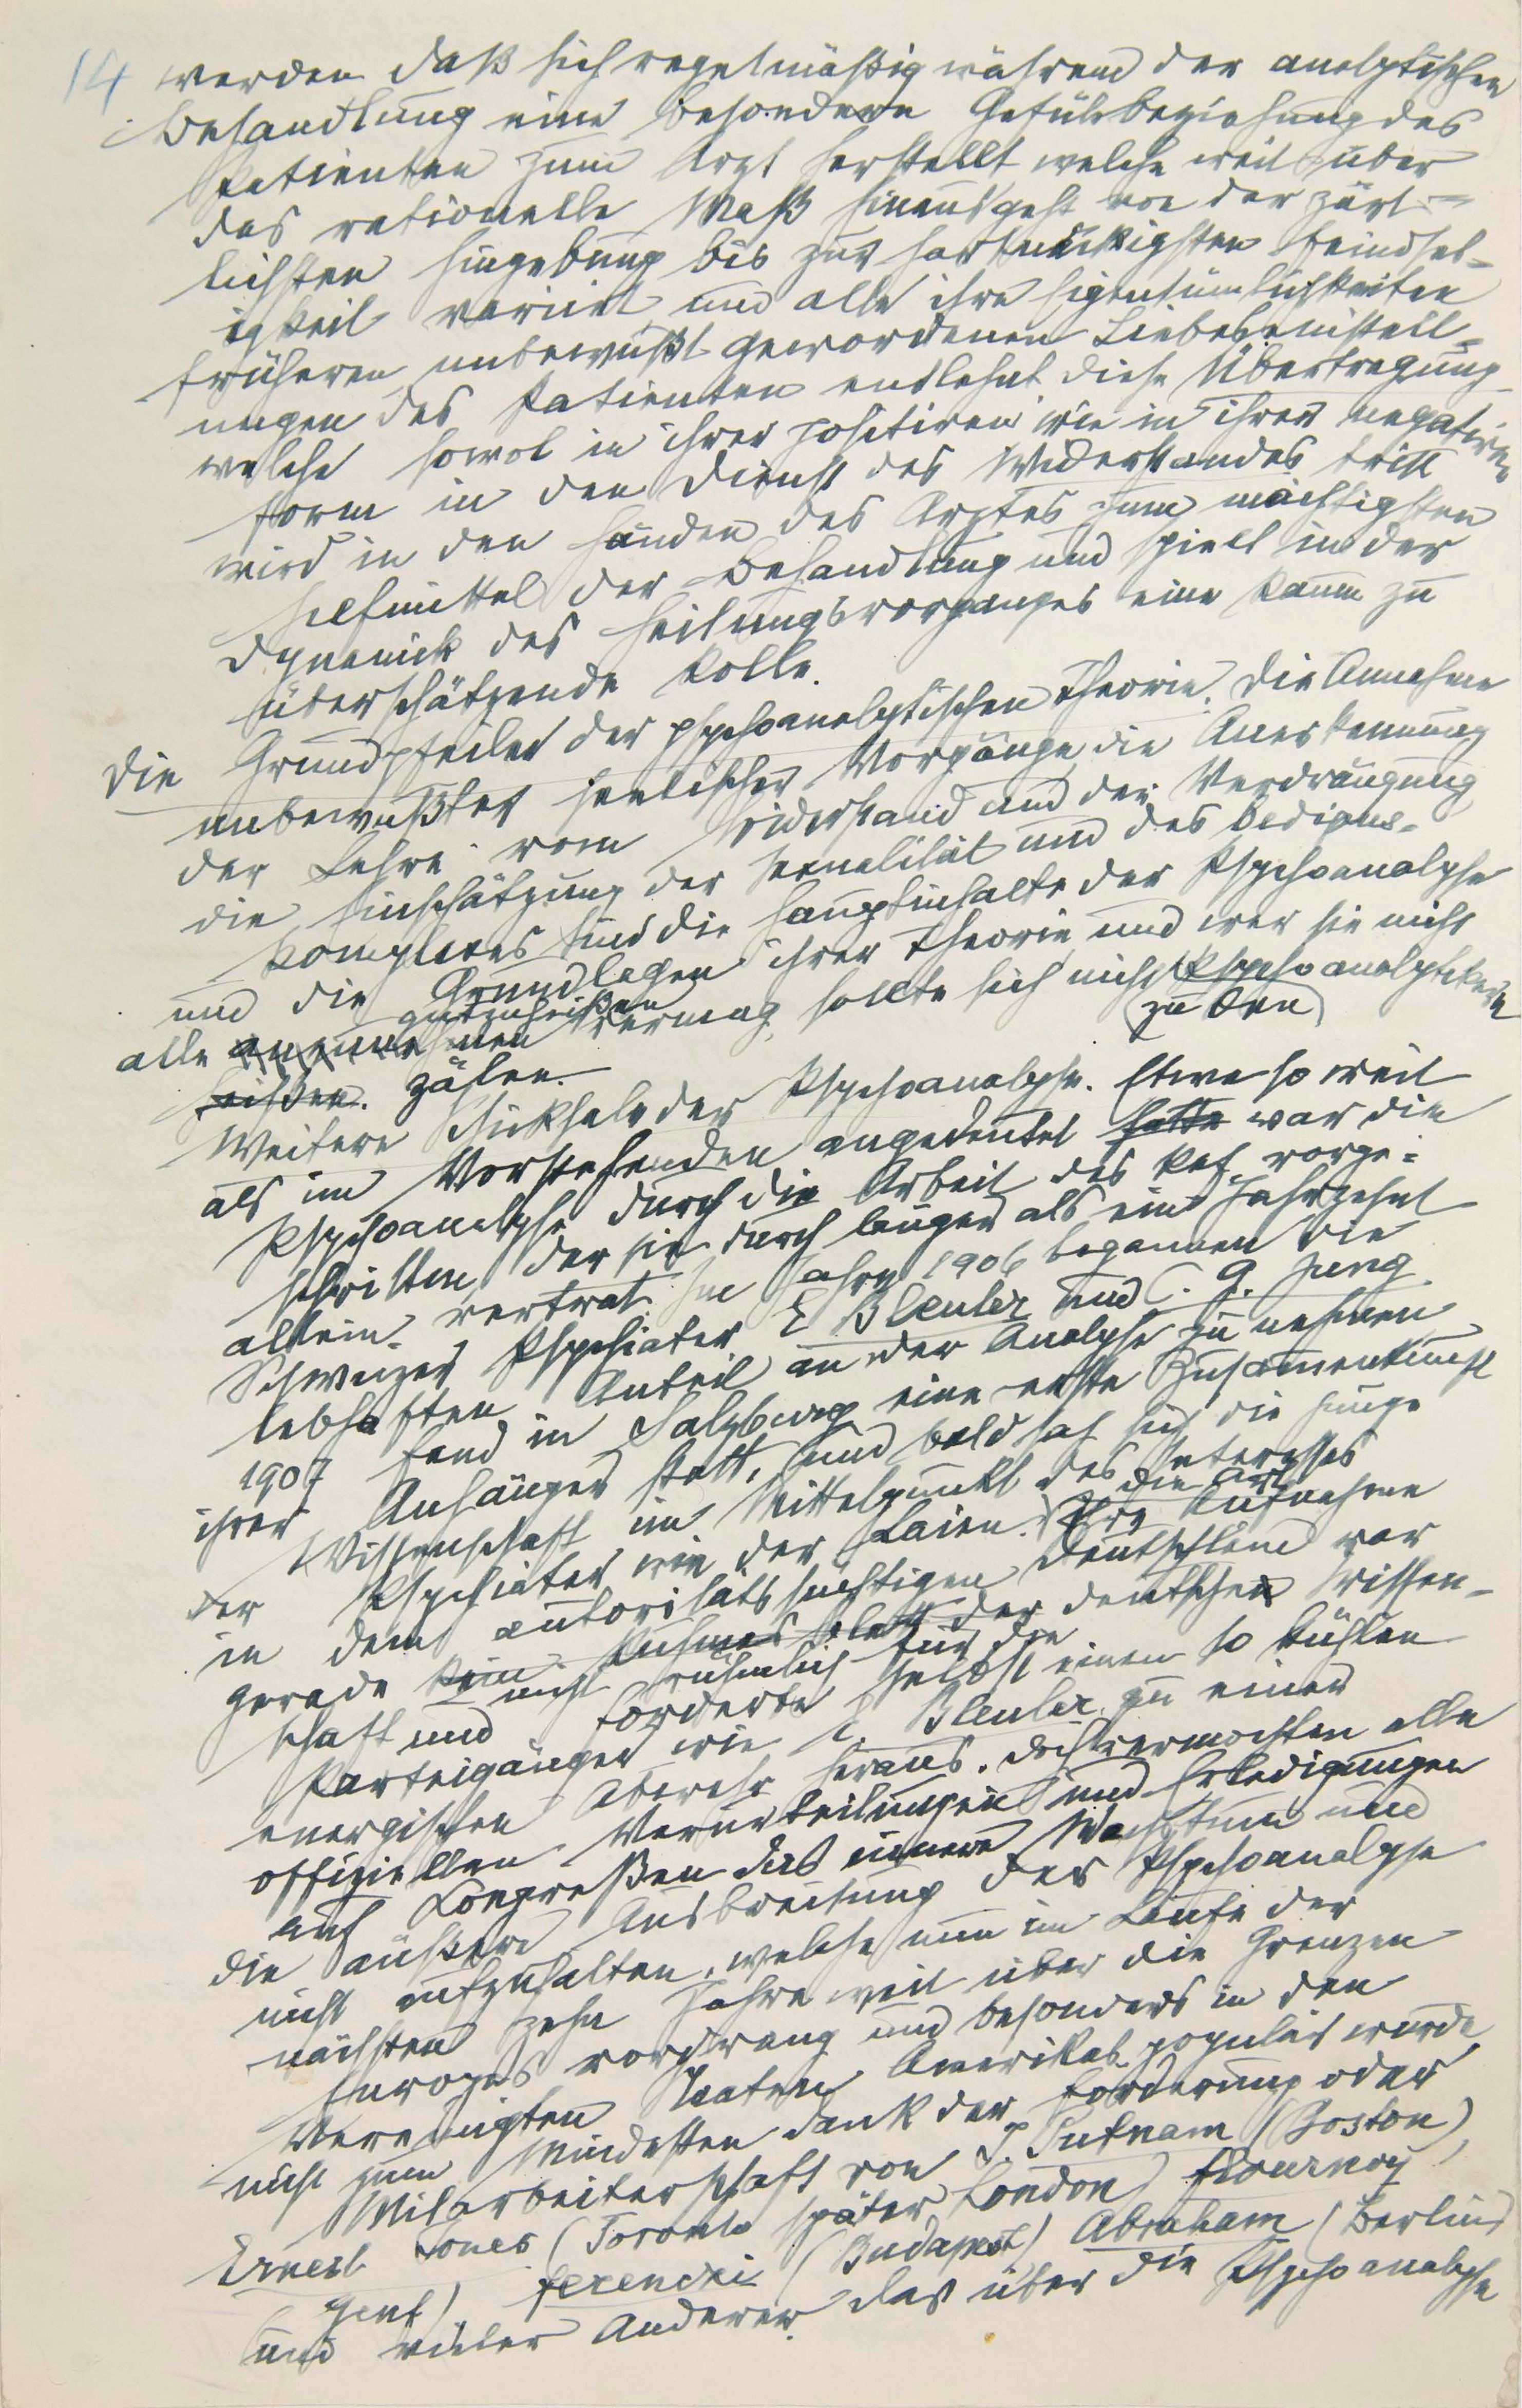 14
werden daß sich regelmäßig während der analytischen
Behandlung eine besondere Gefülsbeziehung des
Patienten zum Arzt herstellt welche weit über
das rationelle Maß hinausgeht von der zärt=
lichsten Hingebung bis zur hartnäckigsten Feindsel=
igkeit variiert und alle ihre Eigentümlichkeiten
früheren unbewußt gewordenen Liebeseinstell=
ungen des Patienten entlehnt diese Übertragung
welche sowol in ihrer positiven wie in ihrer negativen
Form in den Dienst des Widerstandes tritt
wird in den Händen des Arztes zum mächtigsten
Hilfmittel der Behandlung und spielt in der
Dynamik des Heilungsvorganges eine kaum zu
überschätzende Rolle.
Die Grundpfeiler der psychoanalytischen Theorie. Die Annahme
unbewußter seelischer Vorgänge, die Anerkennung
der Lehre vom Widerstand und der Verdrängung
die Einschätzung der Sexualität und des Oedipus=
komplexes sind die Hauptinhalte der Psychoanalyse
und die Grundlagen ihrer Theorie und wer sie nicht
alle annehmen gutzuheißen vermag sollte sich nicht zu den Psychoanalytikern
heißen. zählen.
Weitere Schicksale der Psychoanalyse. Etwa so weit
als im Vorstehenden angedeutet hatte war die
Psychoanalyse durch die Arbeit des Ref. vorge=
schritten der sie durch länger als ein Jahrzehnt
allein vertrat. Im Jahre 1906 begannen die
Schweizer Psychiater E Bleuler und C. G. Jung
lebhaften Anteil an der Analyse zu nehmen
1907 fand in Salzburg eine erste Zusammenkunft
ihrer Anhänger statt, und bald sah sich die junge
Wissenschaft im Mittelpunkt des Interesses
der Psychiater wie der Laien. Ihre die Art Aufnahme
in dem autoritätssüchtigen Deutschland war
gerade kein Ruhmesblatt der deutschen Wissen-
nicht rühmlich für die
schaft und forderte selbst einen so kühlen
Parteigänger wie E. Bleuler zu einer
energischen Abwehr heraus. Doch vermochten alle
offiziellen Verurteilungen und Erledigungen
auf Kongreßen das innere Wachstum und
die äußere Ausbreitung der Psychoanalyse
nicht aufzuhalten, welche nun im Laufe der
nächsten zehn Jahre weit über die Grenzen
Europas vordrang und besonders in den
Vereinigten Staaten Amerikas populär wurde,
nicht zum Mindesten dank der Förderung oder
Mitarbeiterschaft von J. Putnam (Boston)
Ernest Jones (Toronto später London) Flournoy
Genf) Ferenczi (Budapest) Abraham (Berlin)
und vieler Anderer. Das über die Psychoanalyse